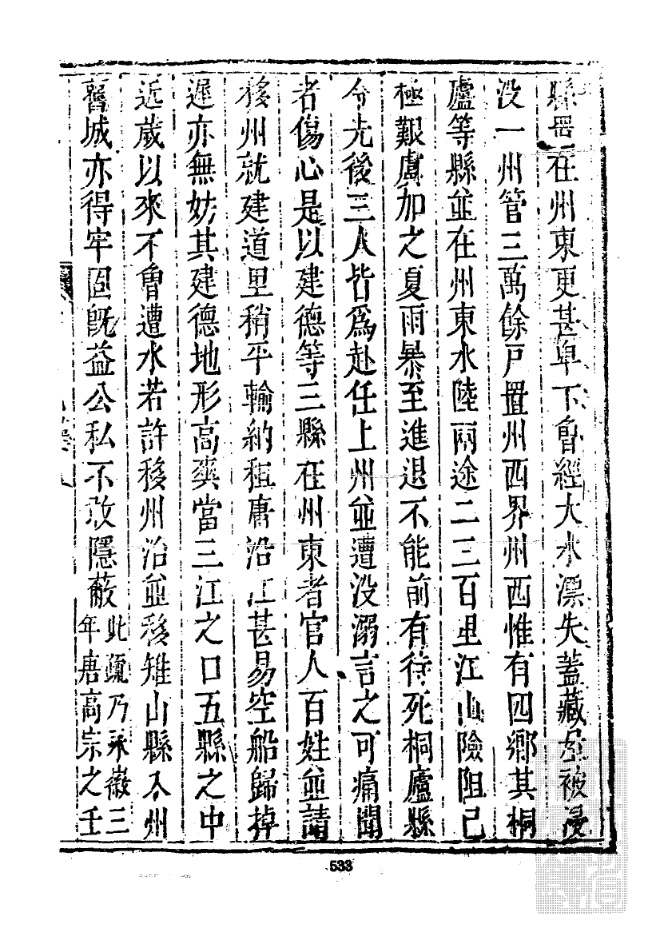 縣皆在州東更甚卑下曾經大水漂失蓋藏並被浸
没一州管三萬餘戶置州西界州西惟有四鄉其桐
廬等縣並在州東水陸兩途二三百里江山險阻已
極艱虞加之夏雨暴至進退不能前有待死桐廬縣
令先後三人皆爲赴任上州並遭没溺言之可痛聞
者傷心是以建德等三縣在州東者官人百姓並請
移州就建道里稍平輸納租庸沿江甚易空船歸掉
遲亦無妨其建德地形高爽當三江之口五縣之中
近歲以來不曾遭水若許移州治並移雉山縣入州
舊城亦得牢固旣益公私不敢隱蔽此䟽乃永徽三
年唐高宗之壬
533